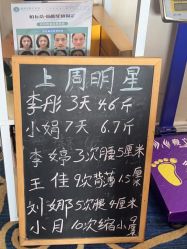 上周明星
李彤 3天 4.6斤
小娟 7天 6.7斤
李婷 3次腰5厘米
王佳 9次背薄1.5厘米
刘娜 5次腰4厘米
小月 10次缩小9厘米